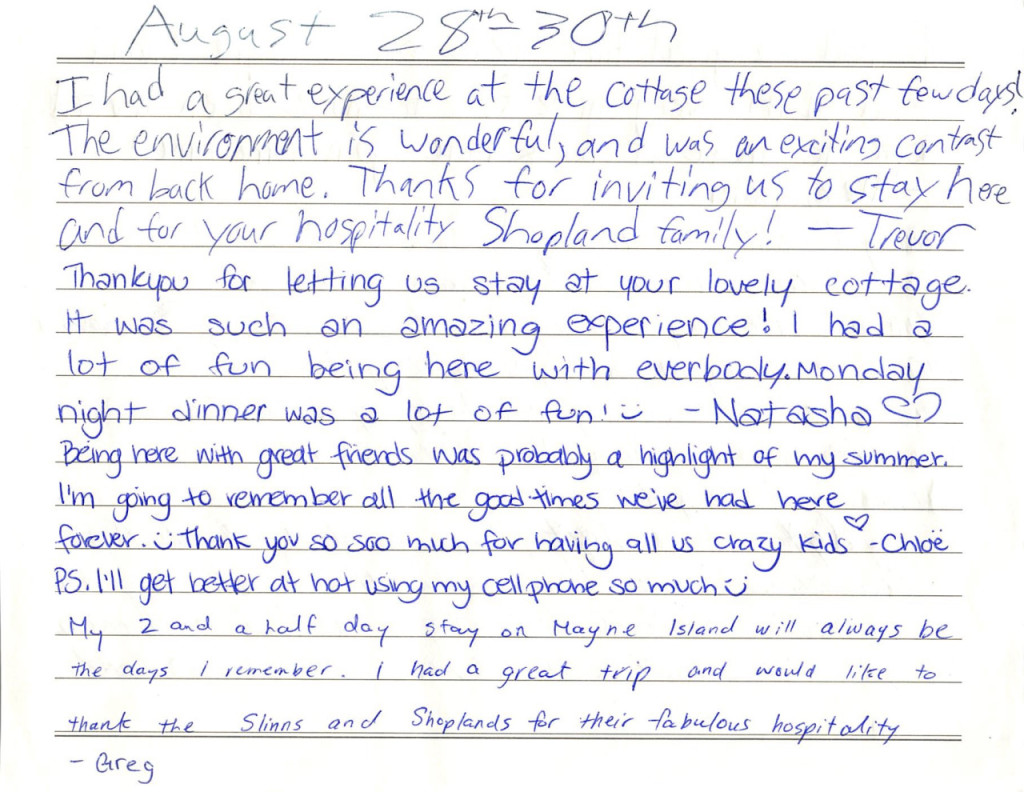 August 28th-30th
I had a great experience at the cottage these past few days!
The environment is wonderful, and was an exciting contrast
from back home. Thanks for inviting us to stay here
and for your hospitality Shopland family! — Trevor
Thankyou for letting us stay at your lovely cottage.
It was such an amazing experience! I had a
lot of fun being here with everbody. Monday
night dinner was a lot of fun! :) - Natasha ♡
Being here with great friends was probably a highlight of my summer.
I'm going to remember all the good times we've had here
forever. :) thank you so soo much for having all us crazy kids ♡ -Chloë
PS. I'll get better at not using my cell phone so much :)
My 2 and a half day stay on Mayne Island will always be
the days I remember. I had a great trip and would like to
thank the Slinns and Shoplands for their fabulous hospitality
- Greg